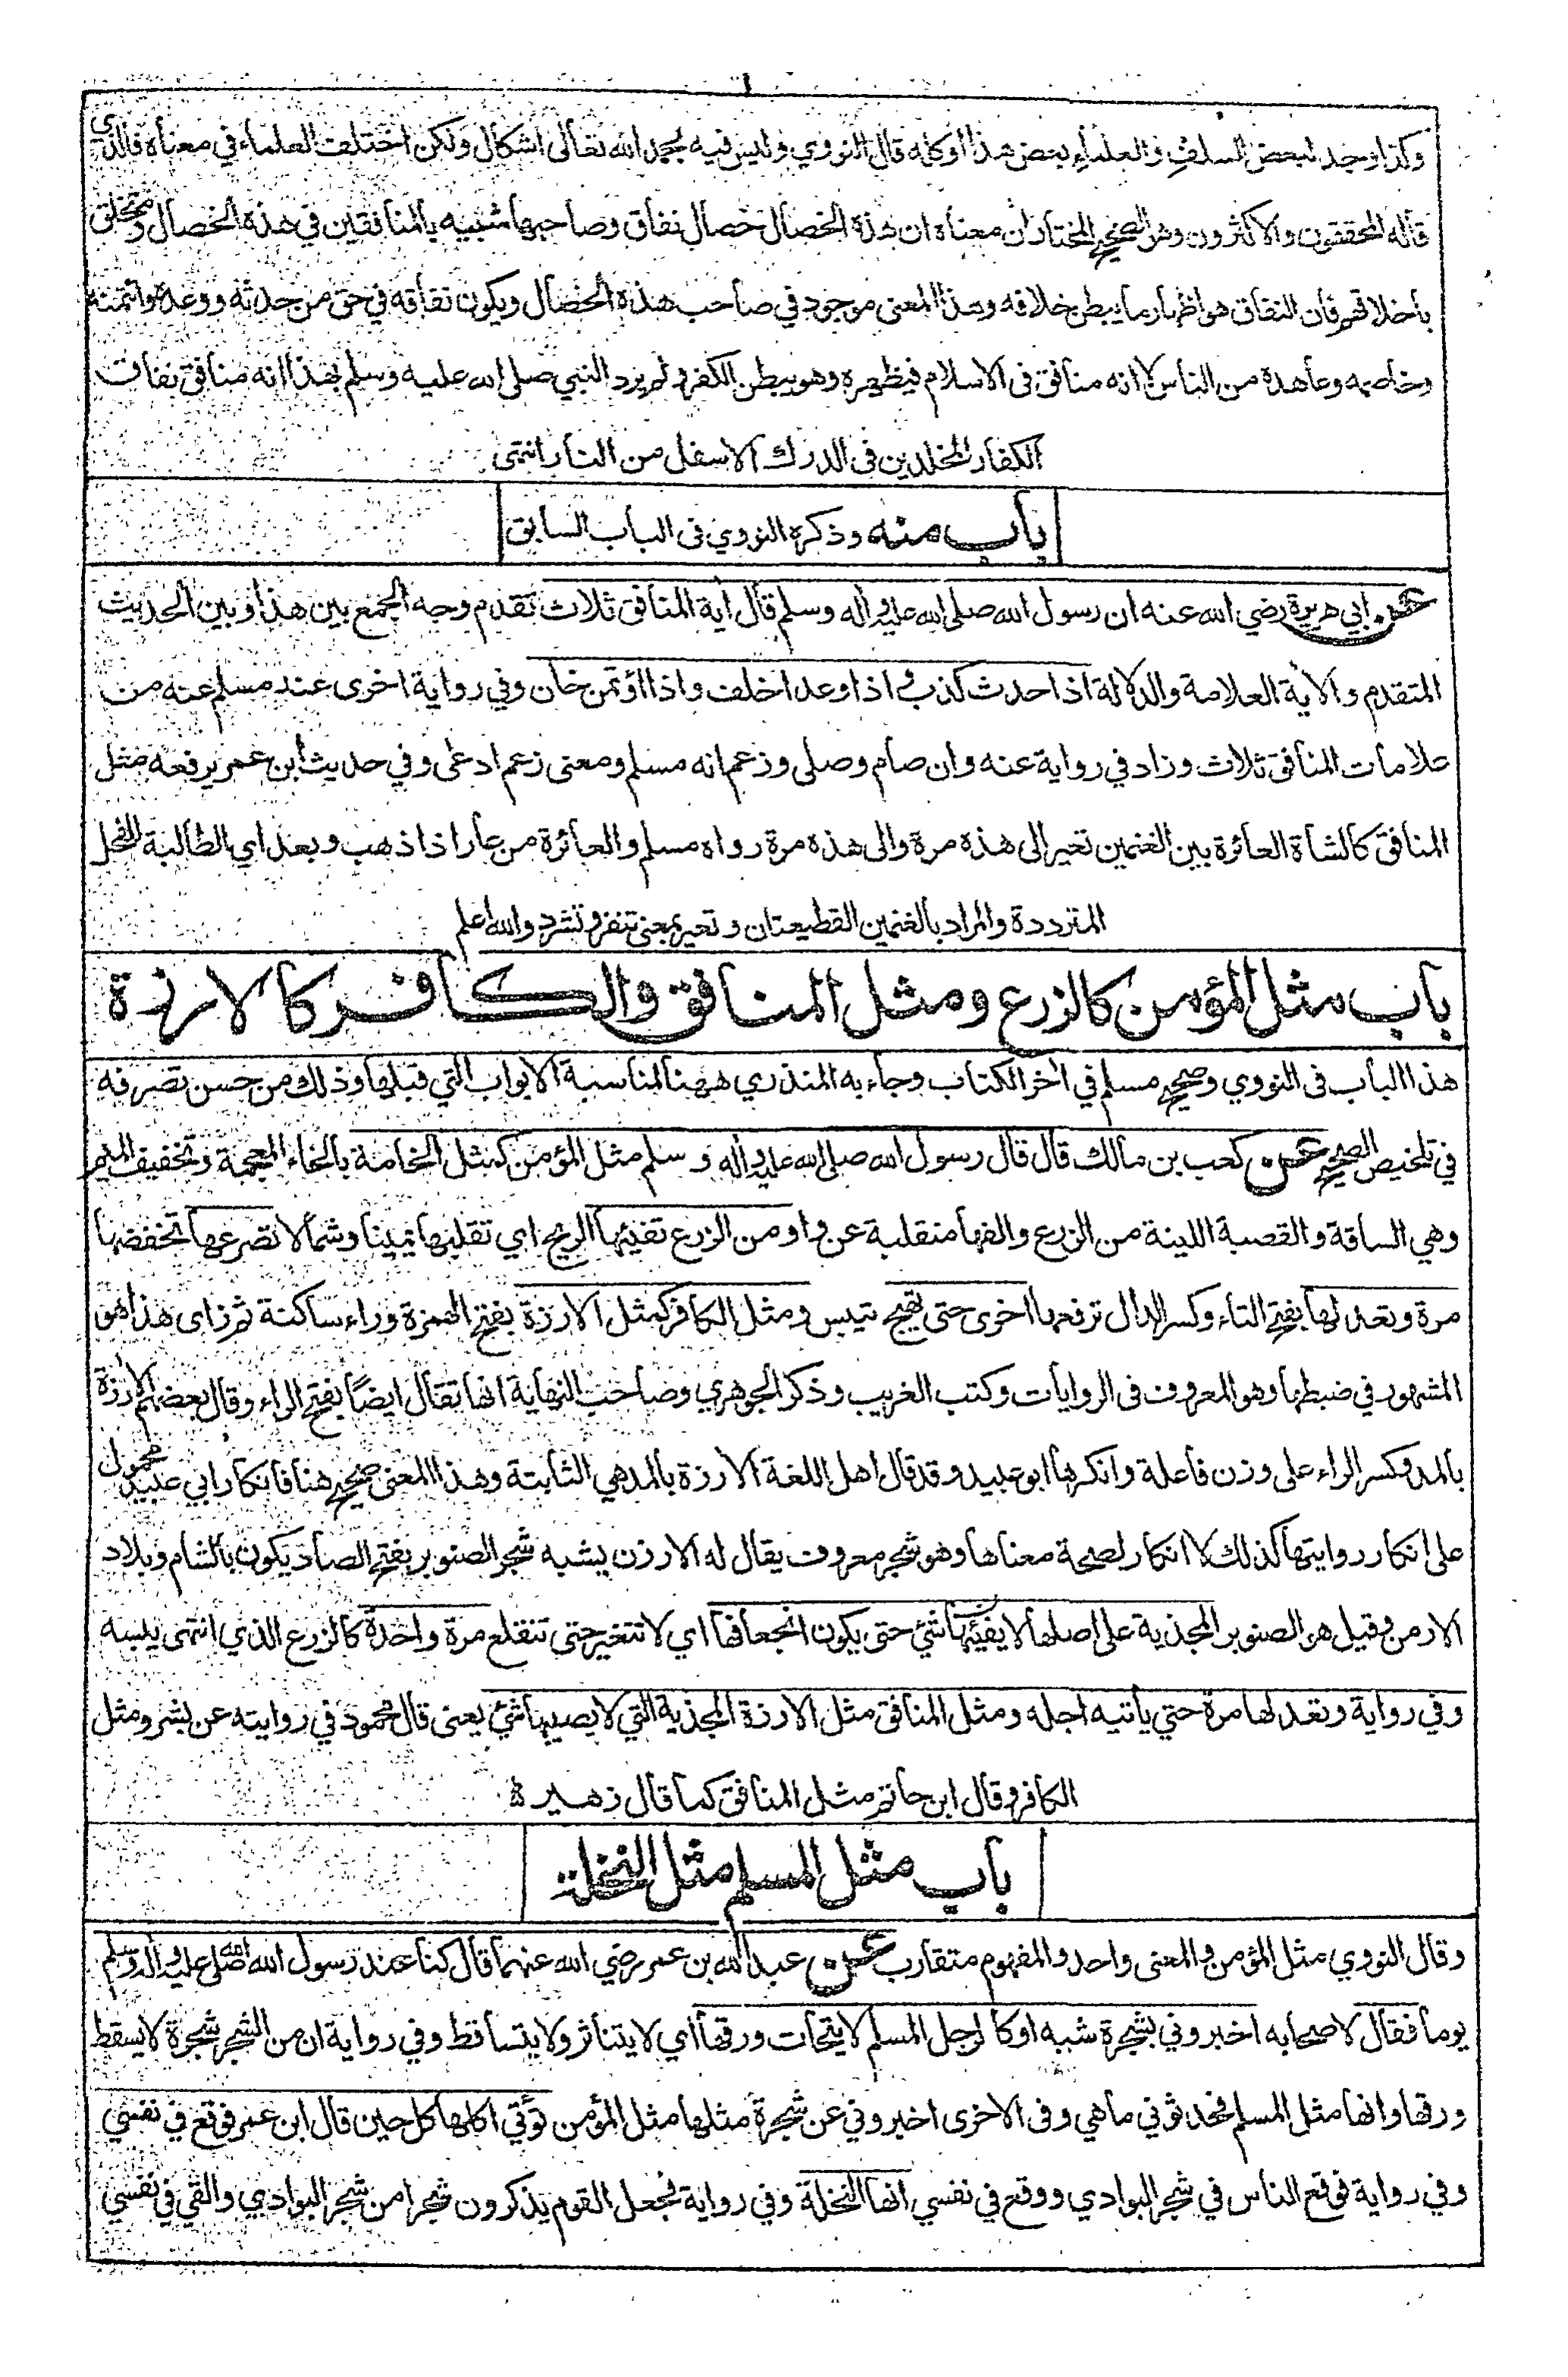 وكذا وجد لبعض السلف والعلماء بعض هذا أو كله قال النووي وليس فيه بحمد الله تعالى اشكال ولكن اختلف العلماء في معناه فالذي
قاله المحققون والاكثرون وهو الصحيح المختار ان معناه ان هذه الخصال خصال نفاق وصاحبها شبيه بالمنافقين في هذه الخصال ومتخلق
باخلاقهم فان النفاق هو اظهار ما يبطن خلافه وهذا المعنى موجود في صاحب هذه الخصال ويكون نفاقه في حق من حدثه ووعده وائتمنه
وخاصمه وعاهده من الناس لا انه منافق فى الاسلام فيظهره وهو يبطن الكفر ولم يرد النبي صلى الله عليه وسلم بهذا انه منافق نفاق
الكفار المخلدين فى الدرك الاسفل من النار انتهى
باب منه وذكره النووي فى الباب السابق
عن ابي هريرة رضي الله عنه ان رسول الله صلى الله عليه وآله وسلم قال آية المنافق ثلاث تقدم وجه الجمع بين هذا وبين الحديث
المتقدم والآية العلامة والدلالة اذا حدث كذب واذا وعد اخلف واذا اؤتمن خان وفي رواية اخرى عند مسلم عنه من
علامات المنافق ثلاث وزاد في رواية عنه وان صام وصلى وزعم انه مسلم ومعنى زعم ادعى وفي حديث ابن عمر يرفعه مثل
المنافق كالشاة العائرة بين الغنمين تعير الى هذه مرة والى هذه مرة رواه مسلم والعائرة من عار اذا ذهب وبعد اي الطالبة للفحل
المترددة والمراد بالغنمين القطيعتان وتعير بمعنى تنفر وتشرد والله اعلم
باب مثل المؤمن كالزرع ومثل المنافق والكافر كالارزة
هذا الباب فى النووي وصحيح مسلم في آخر الكتاب وجاء به المنذري ههنا لمناسبة الابواب التي قبلها وذلك من حسن تصرفه
في تلخيص الصحيح عن كعب بن مالك قال قال رسول الله صلى الله عليه وآله وسلم مثل المؤمن كمثل الخامة بالخاء المعجمة وتخفيف الميم
وهي الساقة والقصبة اللينة من الزرع والفها منقلبة عن واو من الزرع تفيئها الريح اي تقلبها يمينا وشمالا تصرعها تخفضها
مرة وتعدلها بفتح التاء وكسر الدال ترفعها اخرى حتى تهيج تيبس ومثل الكافر كمثل الارزة بفتح الهمزة وراء ساكنة ثم زاى هذا هو
المشهور في ضبطها وهو المعروف فى الروايات وكتب الغريب وذكر الجوهري وصاحب النهاية انها تقال ايضاً بفتح الراء وقال بعضهم الآرزة
بالمد وكسر الراء على وزن فاعلة وانكرها ابو عبيد وقد قال اهل اللغة الآرزة بالمد هي الثابتة وهذا المعنى صحيح هنا فانكار ابي عبيد محمول
على انكار روايتها كذلك لا انكار لصحة معناها وهو شجر معروف يقال له الارزن يشبه شجر الصنوبر بفتح الصاد يكون بالشام وبلاد
الارمن وقيل هو الصنوبر المجذية على اصلها لا يفيئها شئ حتى يكون انجعافها اي لا تتغير حتى تنقلع مرة واحدة كالزرع الذي انتهى يبسه
وفي رواية وتعدلها مرة حتي يأتيه اجله ومثل المنافق مثل الارزة المجذية التي لا يصيبها شئ يعنى قال محمود في روايته عن بشر ومثل
الكافر وقال ابن حاتم مثل المنافق كما قال زهير ة
باب مثل المسلم مثل النخلة
وقال النووي مثل المؤمن والمعنى واحد والمفهوم متقارب عن عبد الله بن عمر رضي الله عنهما قال كنا عند رسول الله صلى الله عليه وآله وسلم
يوما فقال لاصحابه اخبروني بشجرة شبه او كالرجل المسلم لا يتحات ورقها اي لا يتناثر ولا يتساقط وفي رواية ان من الشجر شجرة لا يسقط
ورقها وانها مثل المسلم فحدثوني ماهي وفى الاخرى اخبروني عن شجرة مثلها مثل المؤمن تؤتي اكلها كل حين قال ابن عمر فوقع في نفسي
وفي رواية فوقع الناس في شجر البوادي ووقع في نفسي انها النخلة وفي رواية فجعل القوم يذكرون شجرا من شجر البوادي والقي في نفسي